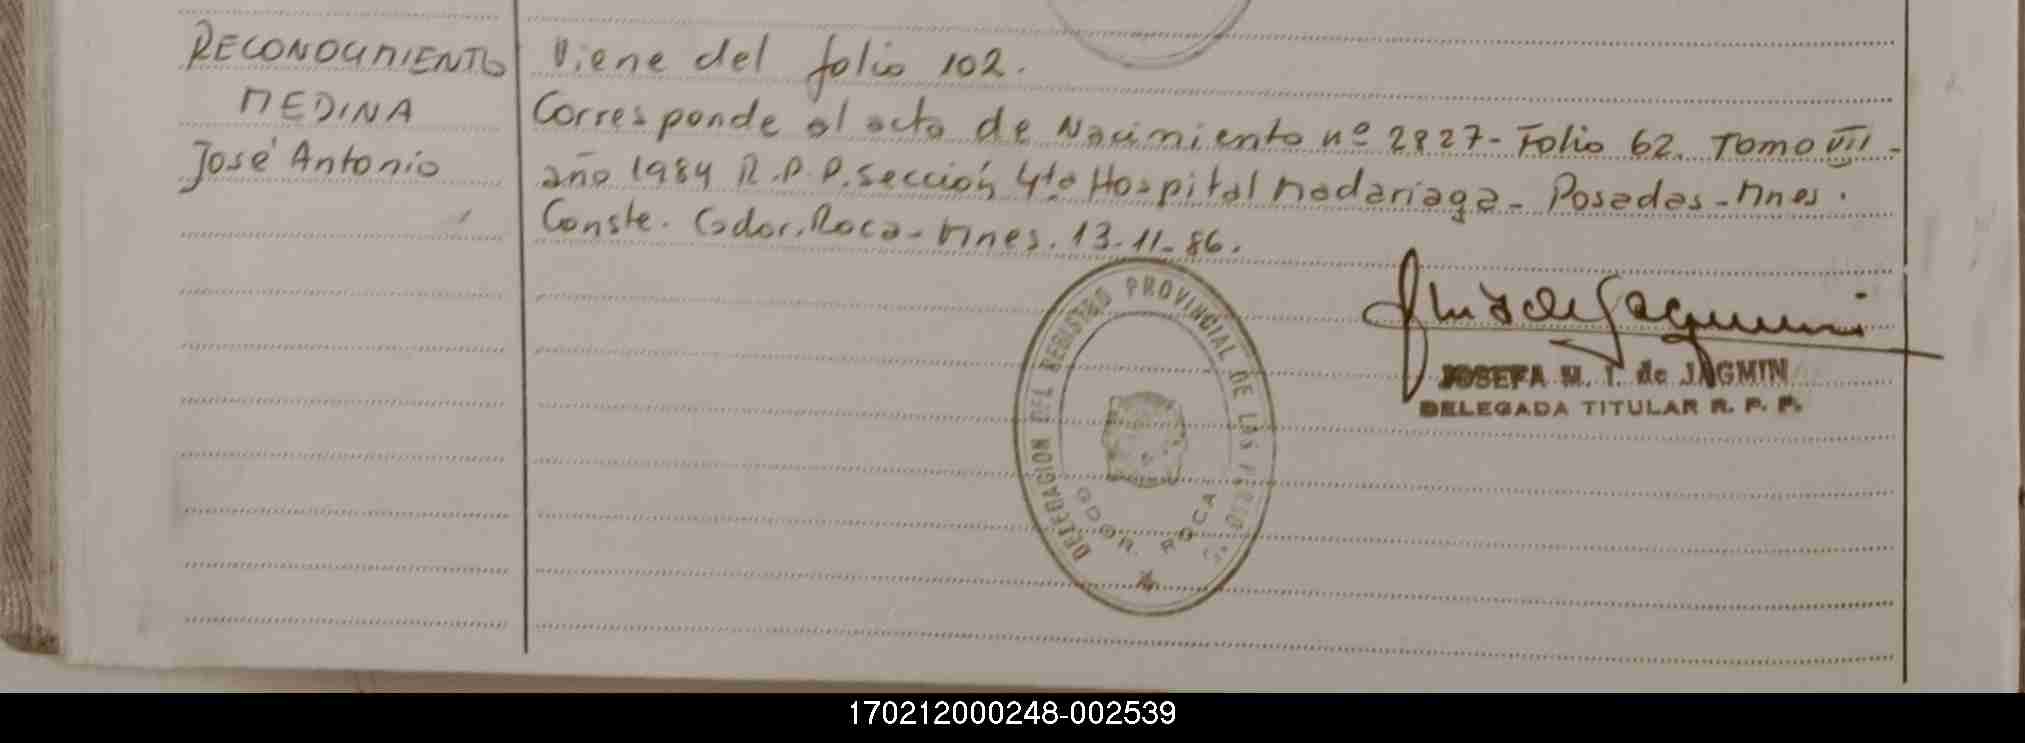 RECONOCIMIENTO
MEDINA
José Antonio
Viene del folio 102.
Corresponde al acta de Nacimiento nº 2827- Folio 62. Tomo VII -
año 1984 R.P.P. sección 4ta Hospital Madariaga - Posadas - Mnes.
Conste. Gdor. Roca - Mnes. 13-11-86.
DELEGACION DEL REGISTRO PROVINCIAL DE LAS
GDOR. ROCA
JOSEFA M. T. de JAGMIN
DELEGADA TITULAR R. P. P.
170212000248-002539